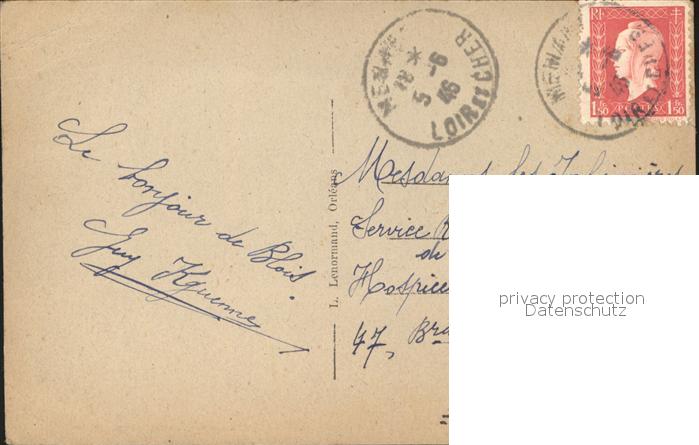 MENARS
18 *
5 - 6
46
LOIR ET CHER
RF
1F50 POSTES 1F50
Le bonjour de Blois.
Guy
L. Lenormand, Orléans
Mesdames les Infirmières
Service
de
Hospice
47,
privacy protection
Datenschutz